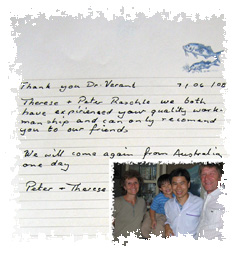 Thank you Dr. Verant 7/06/08
Therese + Peter Raschle we both
have expirienced your quality work-
man ship and can only recomend
you to our friends
We will come again from Australia
one day
Peter + Therese